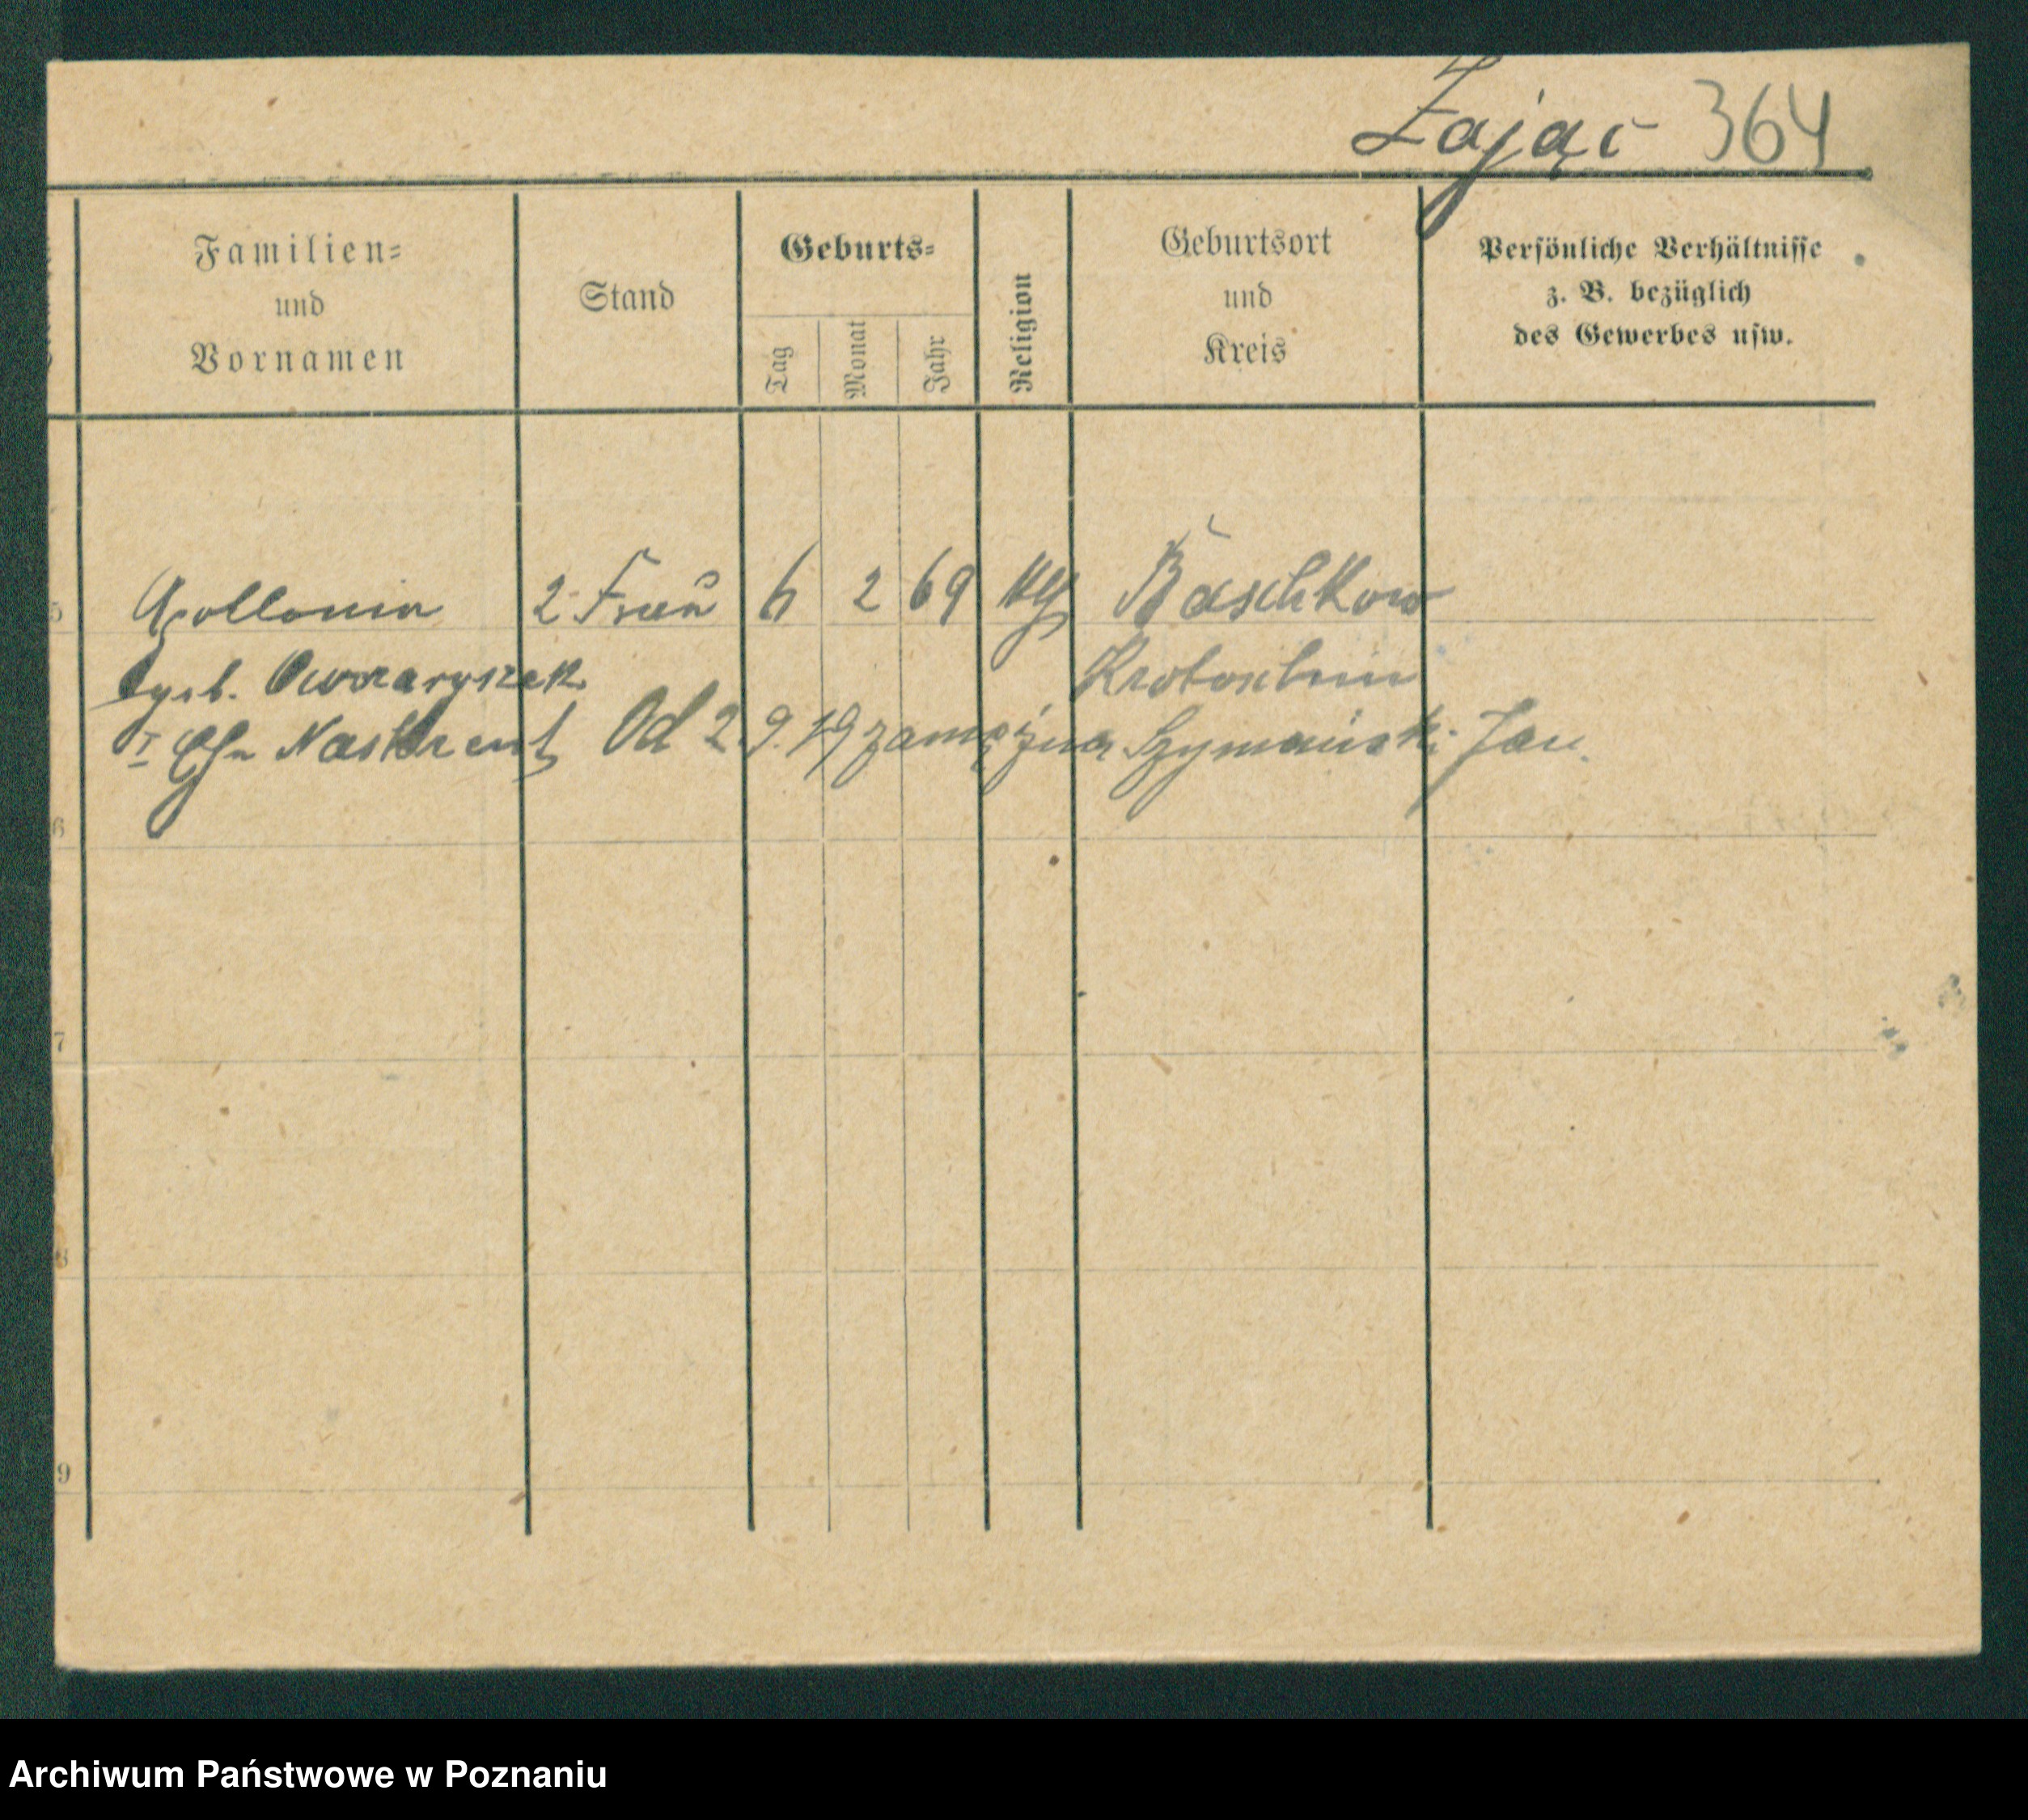 Zając 364
Familien=
und
Vornamen
Stand
Geburts=
Tag
Monat
Jahr
Religion
Geburtsort
und
Kreis
Persönliche Verhältnisse
z. B. bezüglich
des Gewerbes usw.
5 Apollonia 2. Frau 6 2 69 Baschkow
geb. Owczaryszek Krotoschin
I Ehe Naskrent Od 2.9.19 zamężna Szymański Jan.
6
7
8
9
Archiwum Państwowe w Poznaniu